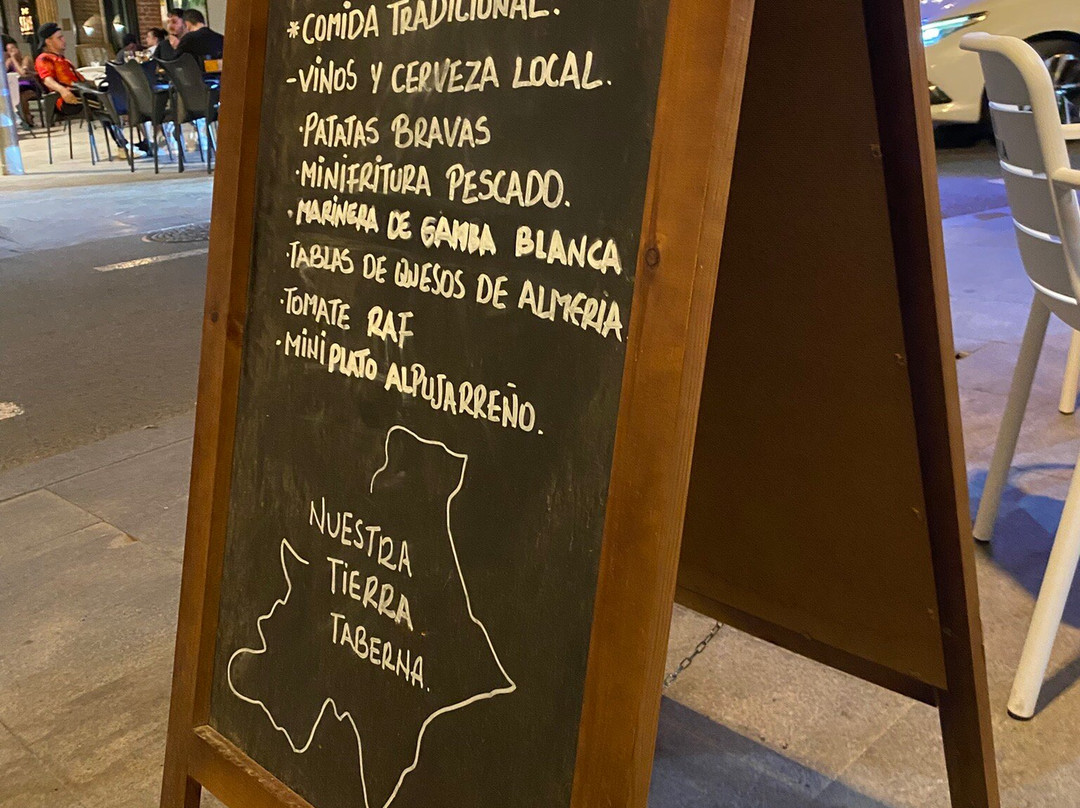 *COMIDA TRADICIONAL.
-VINOS Y CERVEZA LOCAL.
·PATATAS BRAVAS
·MINIFRITURA PESCADO.
·MARINERA DE GAMBA BLANCA
·TABLAS DE QUESOS DE ALMERIA
·TOMATE RAF
·MINI PLATO ALPUJARREÑO.
NUESTRA
TIERRA
TABERNA.